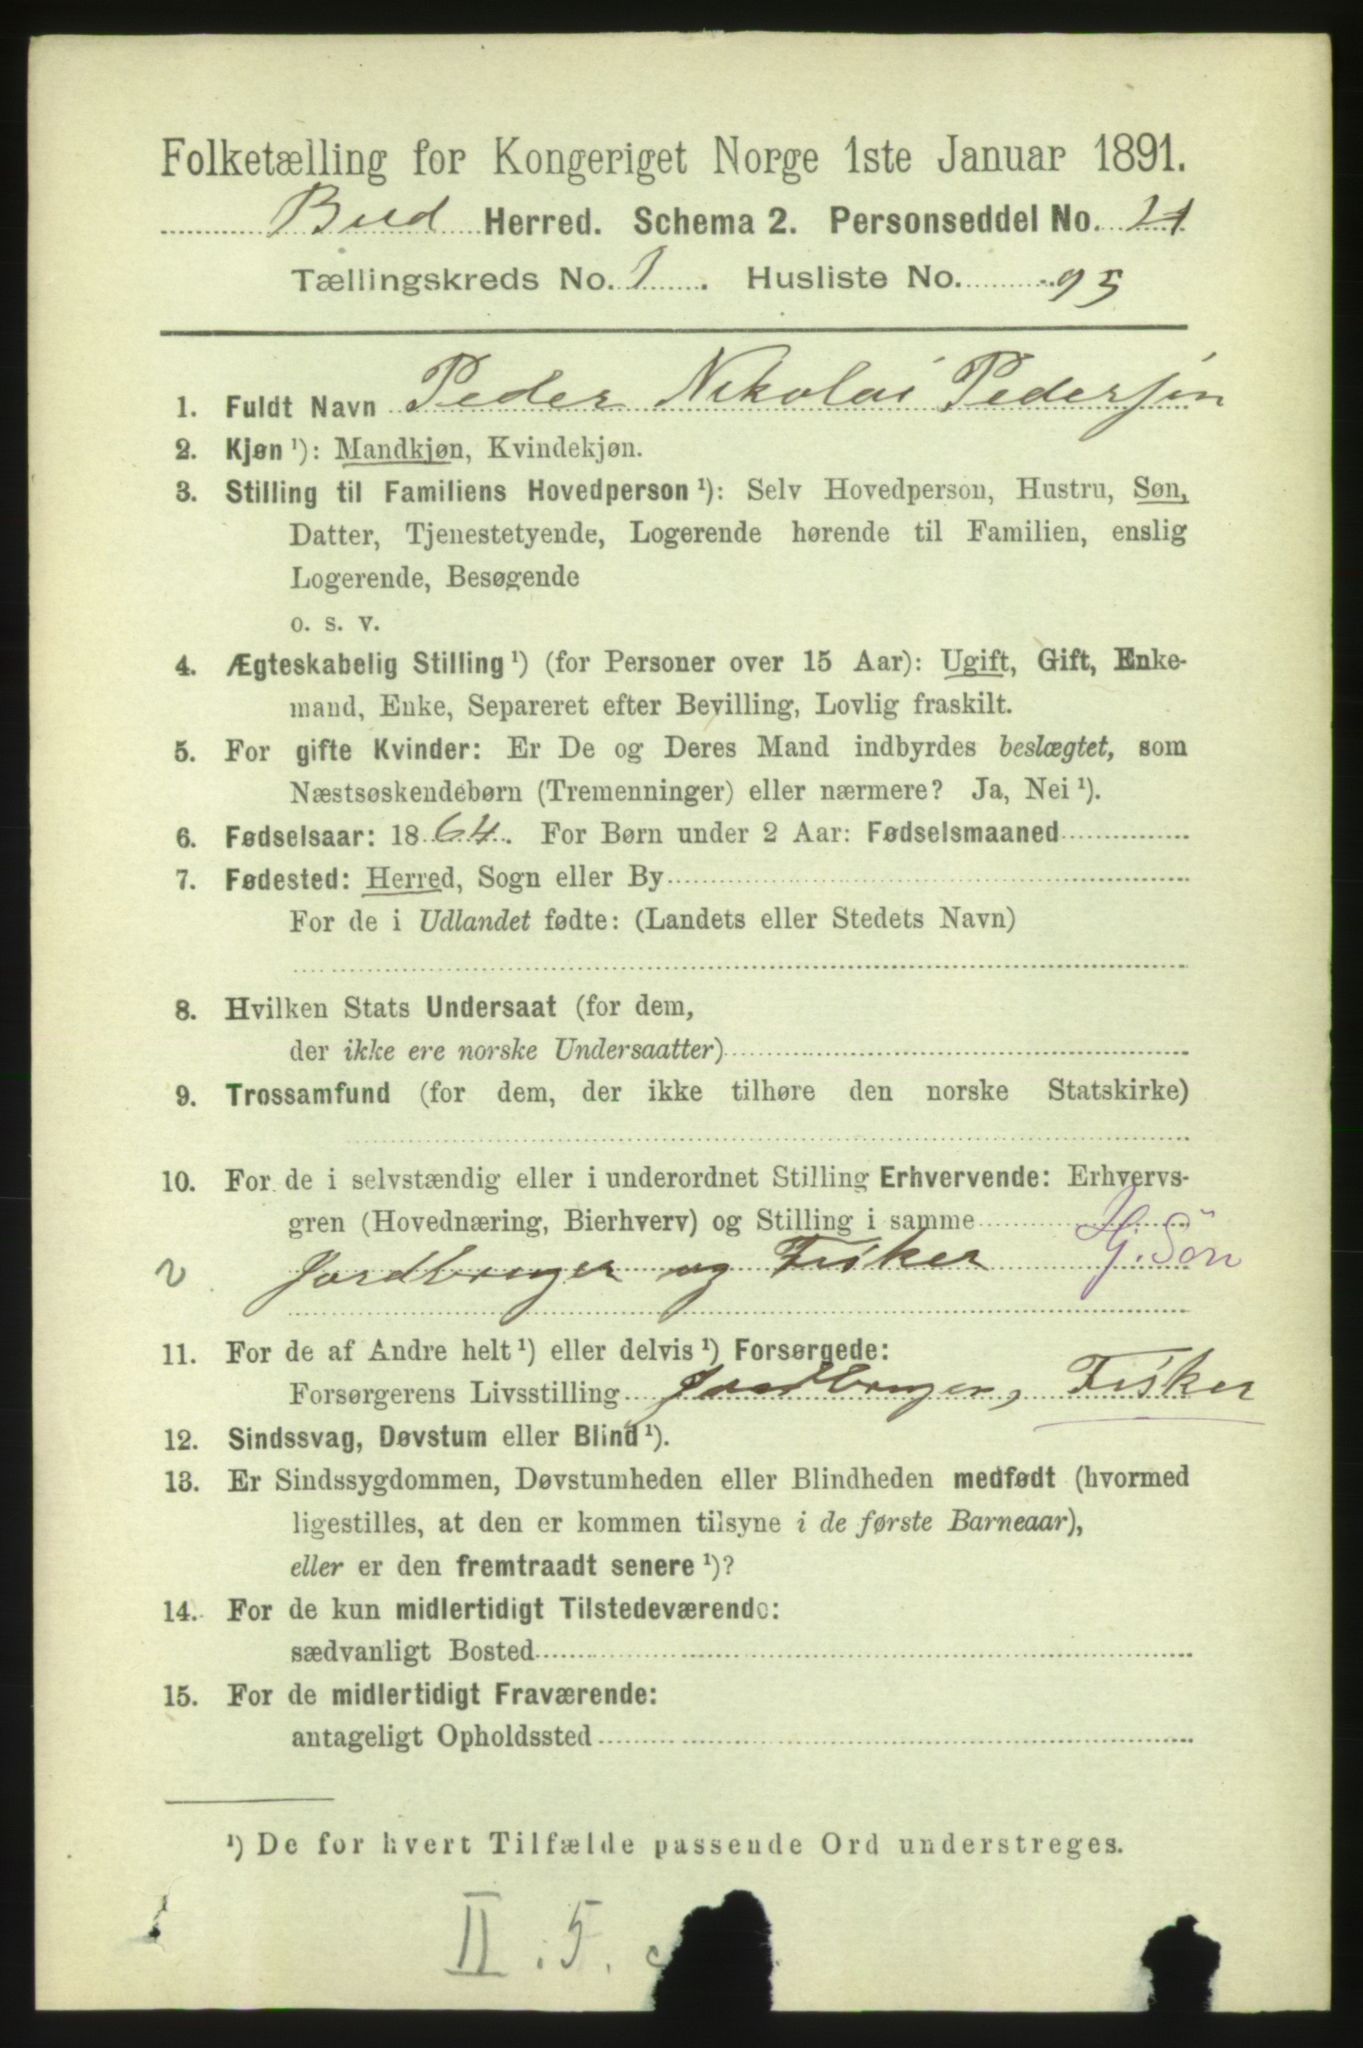 Folketælling for Kongeriget Norge 1ste Januar 1891.
Bud Herred. Schema 2. Personseddel No. 21
Tællingskreds No. 1. Husliste No. 95
1. Fuldt Navn Peder Nikolai Pedersen
2. Kjøn ¹): Mandkjøn, Kvindekjøn.
3. Stilling til Familiens Hovedperson ¹): Selv Hovedperson, Hustru, Søn,
Datter, Tjenestetyende, Logerende hørende til Familien, enslig
Logerende, Besøgende
o. s. v.
4. Ægteskabelig Stilling ¹) (for Personer over 15 Aar): Ugift, Gift, Enke-
mand, Enke, Separeret efter Bevilling, Lovlig fraskilt.
5. For gifte Kvinder: Er De og Deres Mand indbyrdes beslægtet, som
Næstsøskendebørn (Tremenninger) eller nærmere? Ja, Nei ¹).
6. Fødselsaar: 1864. For Børn under 2 Aar: Fødselsmaaned
7. Fødested: Herred, Sogn eller By
For de i Udlandet fødte: (Landets eller Stedets Navn)
8. Hvilken Stats Undersaat (for dem,
der ikke ere norske Undersaatter)
9. Trossamfund (for dem, der ikke tilhøre den norske Statskirke)
10. For de i selvstændig eller i underordnet Stilling Erhvervende: Erhvervs-
gren (Hovednæring, Bierhverv) og Stilling i samme
Jordbruger og Fisker Hj. Søn
11. For de af Andre helt ¹) eller delvis ¹) Forsørgede:
Forsørgerens Livsstilling Jordbruger, Fisker
12. Sindssvag, Døvstum eller Blind ¹).
13. Er Sindssygdommen, Døvstumheden eller Blindheden medfødt (hvormed
ligestilles, at den er kommen tilsyne i de første Barneaar),
eller er den fremtraadt senere ¹)?
14. For de kun midlertidigt Tilstedeværende:
sædvanligt Bosted
15. For de midlertidigt Fraværende:
antageligt Opholdssted
¹) De for hvert Tilfælde passende Ord understreges.
II. 5.